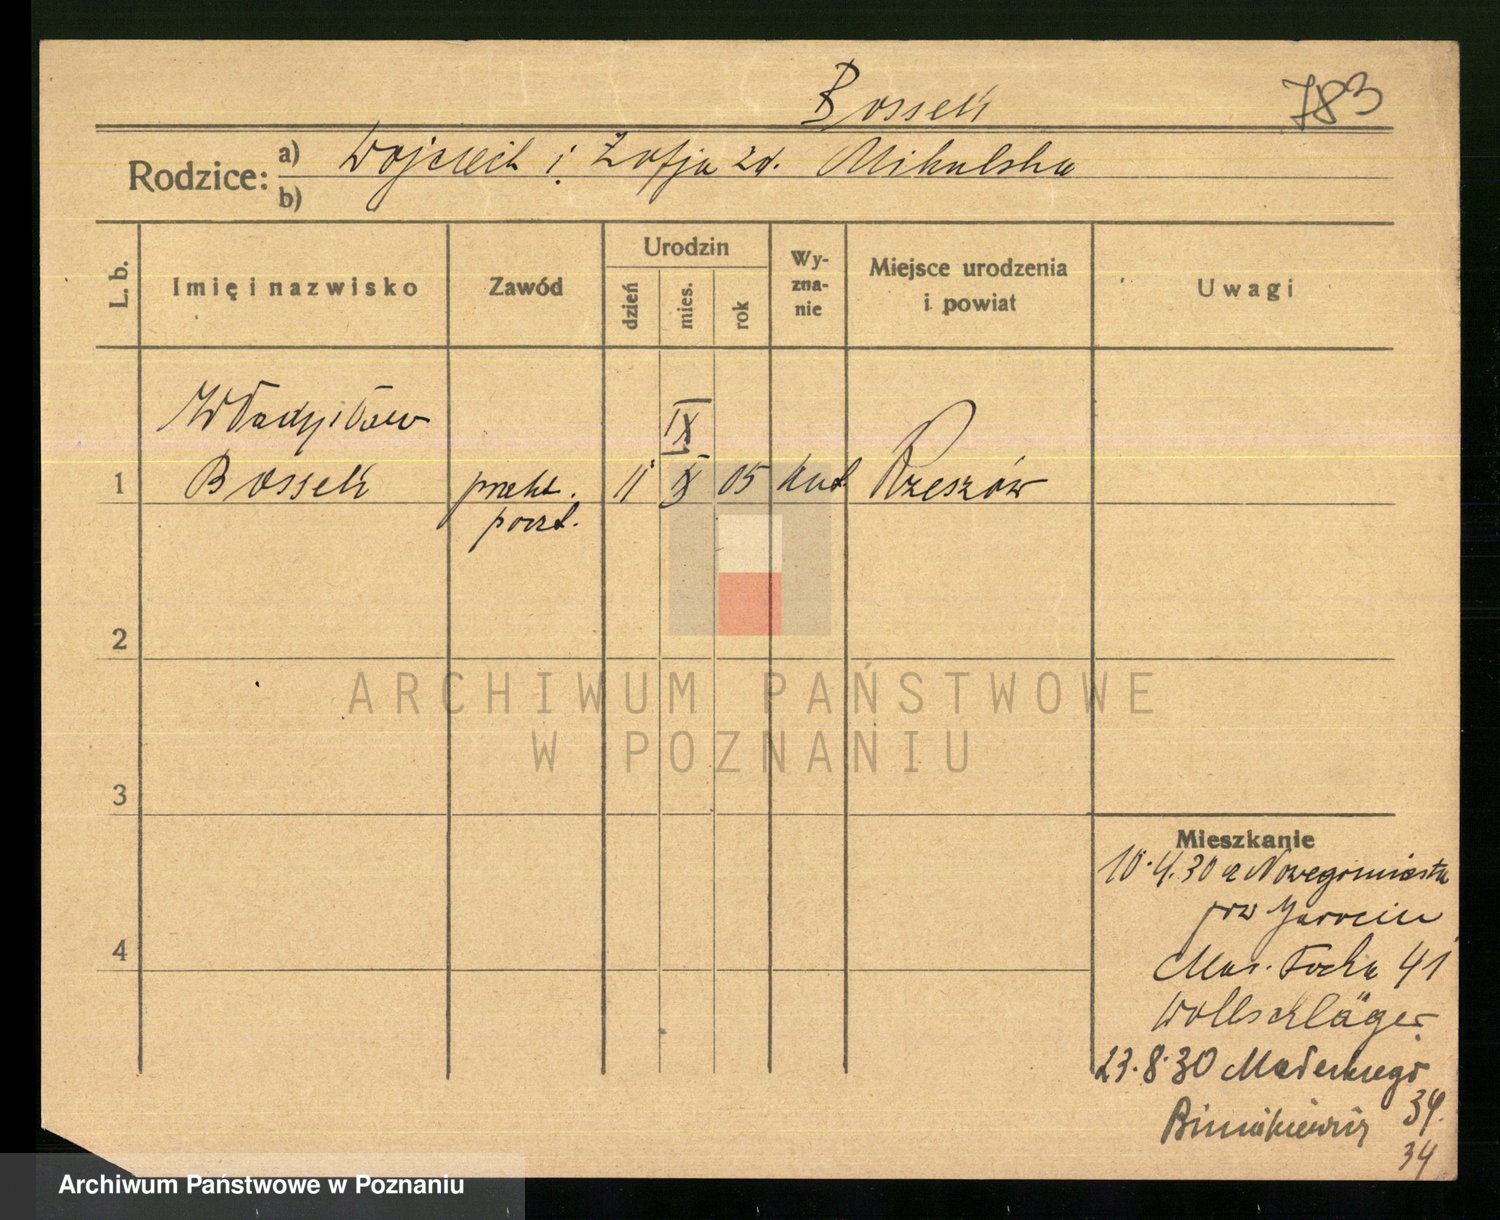 Bossek 783
Rodzice: a) Wojciech i Zofja zd. Mikulska
b)
L. b. Imię i nazwisko Zawód Urodzin dzień mies. rok Wyznanie Miejsce urodzenia i powiat Uwagi
Władysław IX
1 Bossek prakt. 11 X 05 kat. Rzeszów
poczt.
2
ARCHIWUM PAŃSTWOWE
W POZNANIU
3
Mieszkanie
10.4.30 z Nowegomiasta
pow Jarocin
4
Mar. Focha 41
Wollschläger
23.8.30 Małeckiego
34.
34
Archiwum Państwowe w Poznaniu